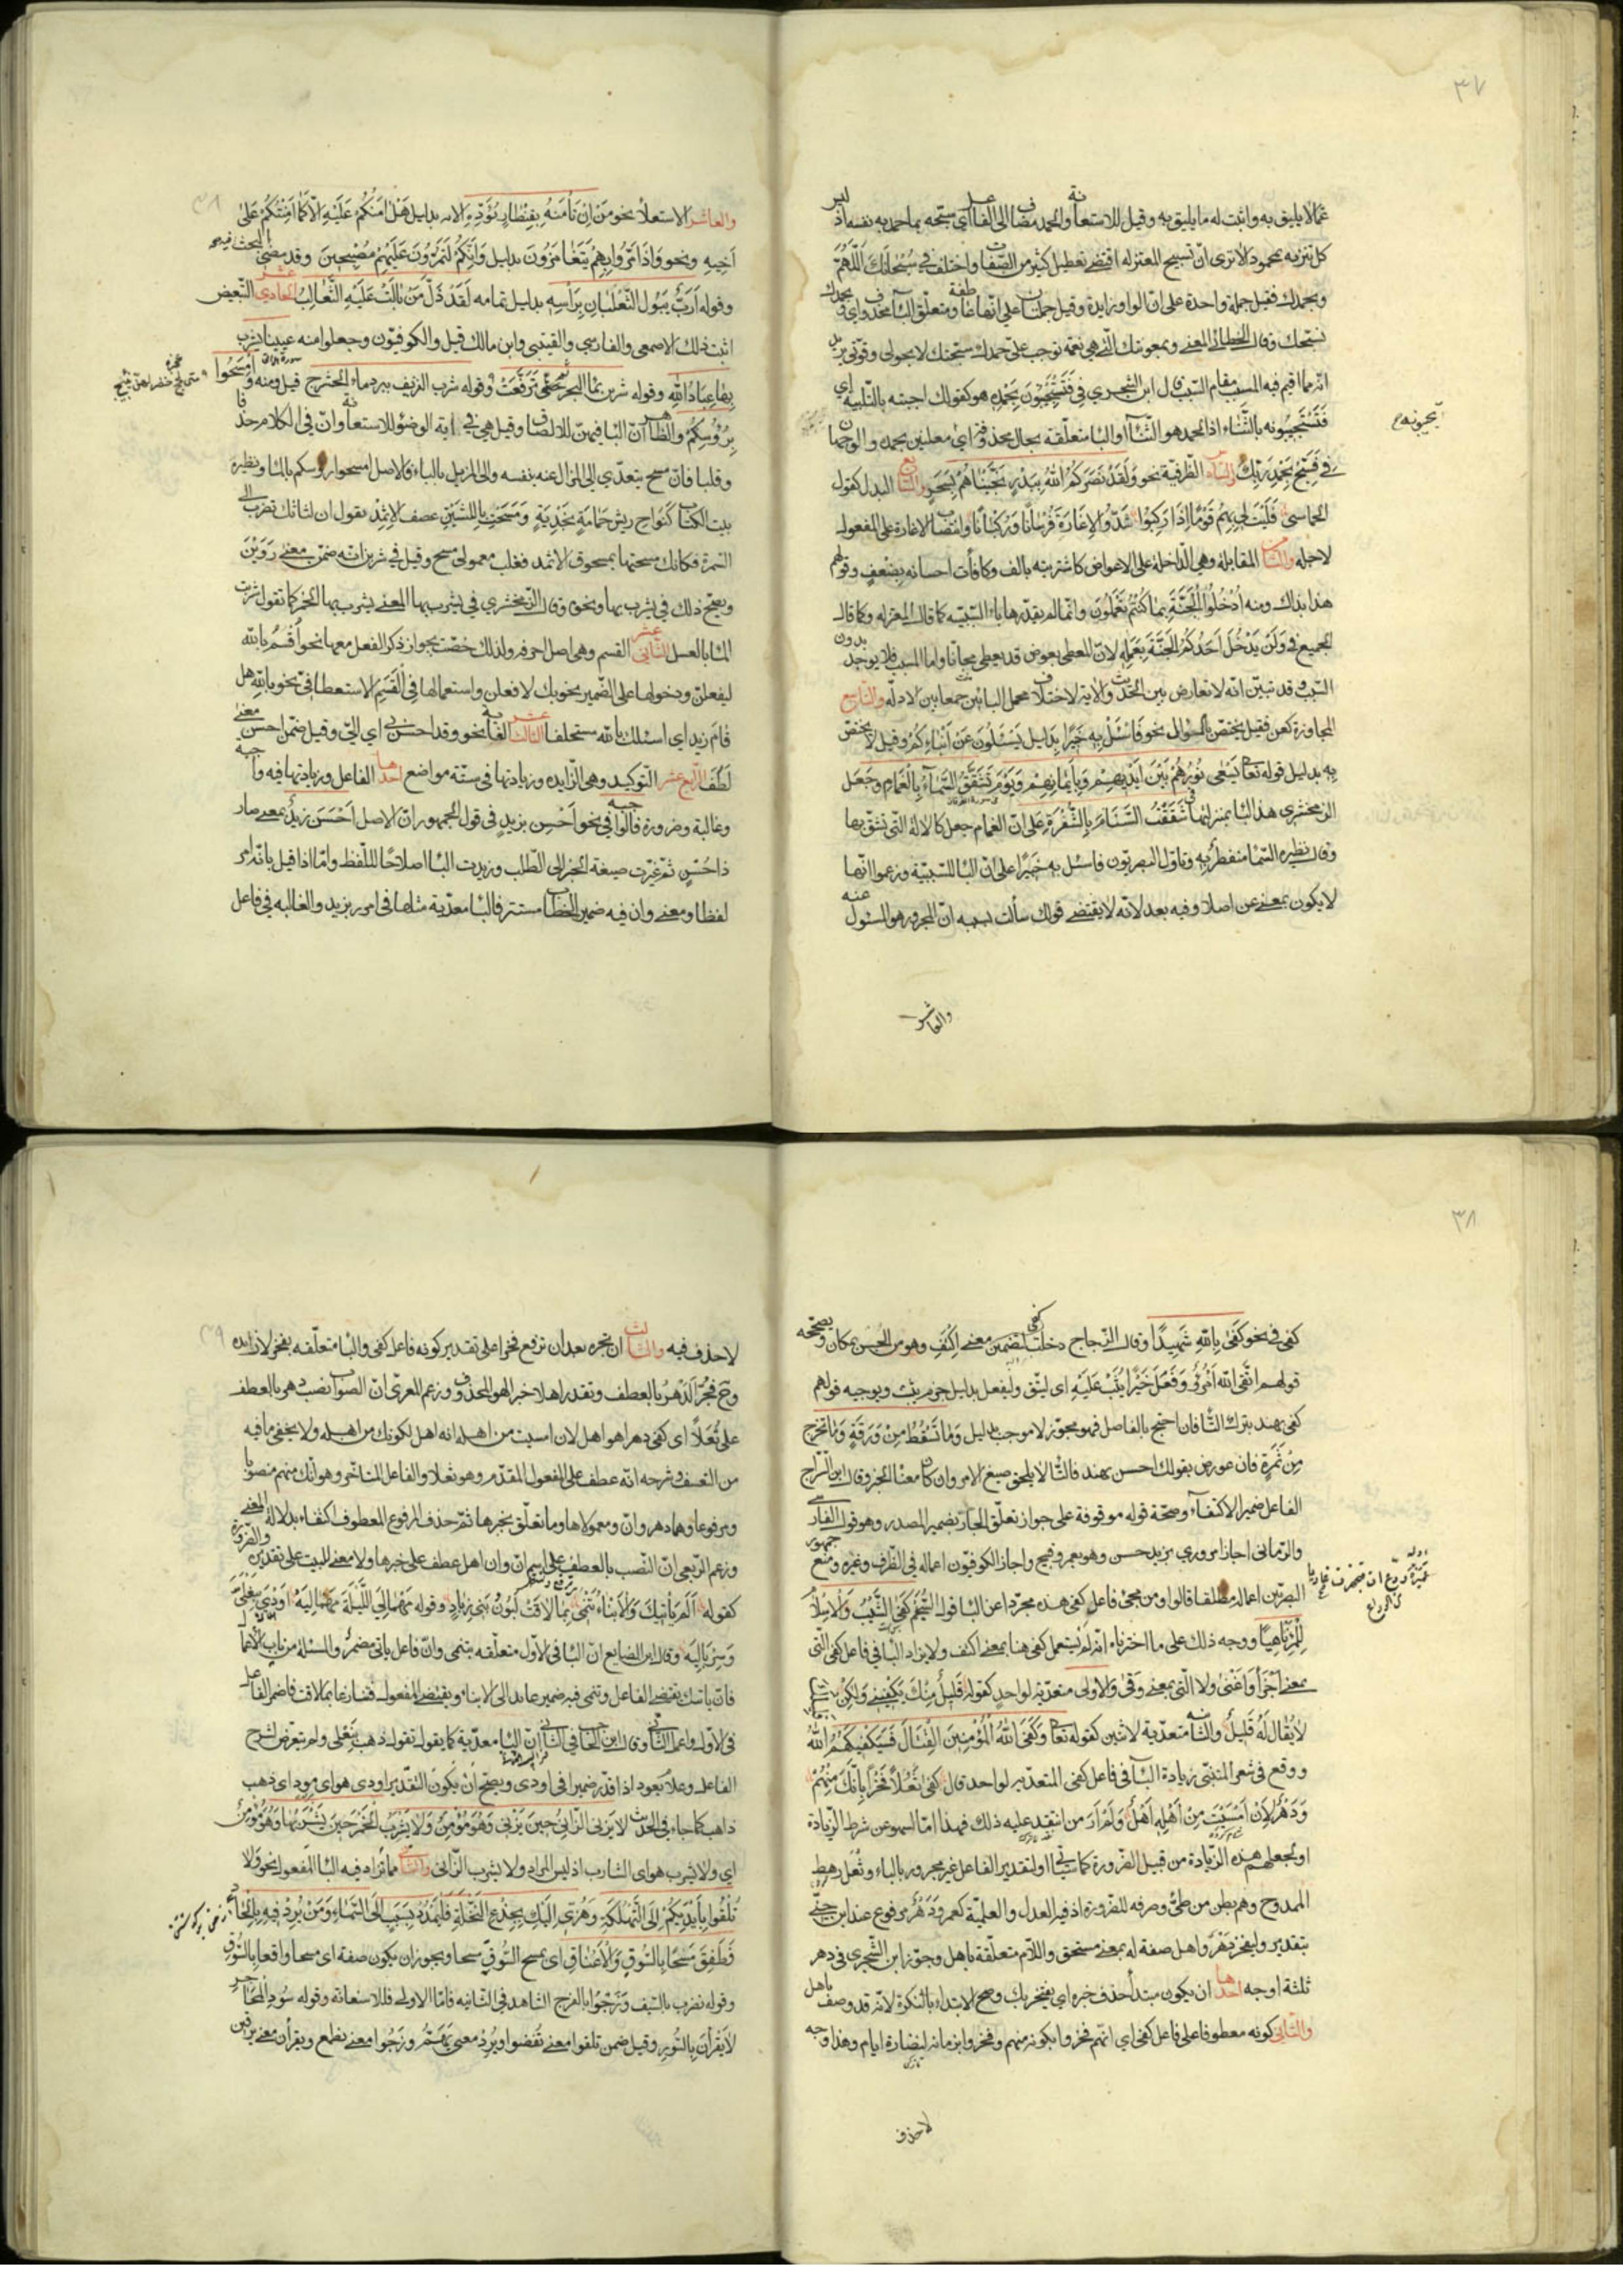 ٣٧
عمّا لا يليق به واثبت له ما يليق به وقيل للاستعانة والحمد مضاف الى الفاعل اي سبّحه بما حمد به نفسه اذ ليس
كل تنزيه بمحمود الا ترى انّ تسبيح المعتزله اقتضى تعطيل كثير من الصّفات واختلف في سُبْحانَكَ اَللّهُمَّ
وبحمدك فقيل جملة واحدة على انّ الواو زايدة وقيل جملتان على انّها عاطفة ومتعلّق البآء محذوف اي وبحمدك
سبّحتك وقال الخطابي المعنى وبمعونتك الّتي هي نعمة توجب علىّ حمدك سبّحتك لا بحولي وقوّتي يريد
انّه مما اقيم فيه المسبب مقام السّبب وقال ابن الشجري في فَتَسْتَجيبُونَ بِحَمْدِهِ هو كقولك اجبته بالتّلبية اي
فَتَسْتَجيبُونه بالثَّناء اذ الحمد هو الثّناء او البا متعلّقة بحال محذوفة اي معلنين بحمده والوجهان
في فَسَبِّحْ بِحَمْدِ رَبِّكَ والسّادس الظّرفية نحو وَلَقَدْ نَصَرَكُمُ اللهُ بِبَدْرٍ نَجَّيْناهُمْ بِسَحَرٍ والسّابع البدل كقول
الحماسي فَلَيْتَ لي بِهِم قَوْماً اِذا رَكِبُوا شَدُّوا الاِغارَةَ فُرْساناً وَرُكْباناً وانتصاب الاغارة على المفعول
لاجله والثّامن المقابلة وهي الدّاخلة على الاعواض كاشتريته بالف وكافأت احسانه بِضِعْفٍ وقولهم
هذا بذاك ومنه اُدْخُلُوا الْجَنَّةَ بِما كُنْتُمْ تَعْمَلُونَ وانّما لم يقدّرها باء السّببيّه كما قالت المعتزله وكما قال
الجميع في وَلَنْ يَدْخُلَ اَحَدُكُمُ الْجَنَّةَ بِعَمَلِهِ لانّ المعطى بعوض قد يعطى مجاناً واما المسبب فلا يوجد بدون
السّبب وقد تبيّن انّه لا تعارض بين الحديث والآية لاختلاف محمل البائين جمعا بين الادلّه والتّاسع
المجاوزة كعن فقيل يختص بالسؤال نحو فَاسْئَلْ بِهِ خَبيراً بدليل يَسْئَلُونَ عَنْ اَنْبائِكُمْ وقيل لا يختص
به بدليل قوله تعا يَسْعى نُورُهُمْ بَيْنَ اَيْديهِمْ وَبِاَيْمانِهِمْ وَيَوْمَ تَشَقَّقُ السَّماءُ بِالْغَمامِ وجَعَل
الزمخشري هذه البا بمنزلتها في شَقَقْتُ السَّنامَ بِالشَّفْرَةِ على انّ الغمام جعل كالالة الّتي تشقّ بها
وقال نظيره السّماء منفطرٌ به وتاوّل البصريّون فاسئل به خَبيراً على انّ البا للسّببيّة وزعموا انّها
لا يكون بمعنى عن اصلا وفيه بعد لانّه لا يقتضي قولك سألت بسببه انّ المجرور هو المسئول عنه
والعاشر
والعاشر الاستعلآء نحو مَنْ اِنْ تَأمَنْهُ بِقِنْطارٍ يُؤَدِّهِ الايه بدليل هَلْ امَنُكُمْ عَلَيْهِ اِلّا كَما اَمِنْتُكُمْ عَلى
اَخيهِ ونحو وَاِذا مَرُّوا بِهِمْ يَتَغامَزُونَ بدليل وَاِنَّكُمْ لَتَمُرُّونَ عَلَيْهِمْ مُصْبِحينَ وقد مضى البحث فيه
وقوله اَرَبٌّ يَبُولُ الثَّعْلَبانُ بِرَأسِهِ بدليل تمامه لَقَدْ ذَلَّ مَنْ بالَتْ عَلَيْهِ الثَّعالِبُ الحادي عشر التّبعيض
اثبت ذلك الاصمعي والفارسي والقتيبي وابن مالك قيل والكوفيّون وجعلوا منه عيناً يشرب
بِها عِبادُ اللهِ وقوله شربن بماء البحر ثُمَّ تَرَفَّعَتْ وقوله شرب النزيف ببرد ماء الحشرج قيل ومنه وَامْسَحُوا
بِرُؤُسِكُمْ والظّاهر انّ البا فيهنّ للالصاق وقيل هي في اية الوضوء للاستعانة وانّ في الكلام حذفا
وقلبا فانّ مسح يتعدّى الى المزال عنه بنفسه والى المزيل بالباء فالاصل امسحوا رؤسكم بالماء ونظيره
بيت الكتاب كَنَواحِ ريشِ حَمامَةٍ نَجْدِيَّةٍ وَمَسَحْتِ بِاللِّثَتَيْنِ عَصْفَ الاِثْمِدِ يقول ان لثاتك تضرب الى
السّمرة فكانك مسحتها بمسحوق الاثمد فقلب معمولى مسح وقيل في شربن انّه ضمّن معنى رَوَيْنَ
ويصحّ ذلك في يشرب بها ونحوه وقال الزمخشري في يشرب بها المعنى يشرب بها الخمر كما تقول شربت
الماء بالعسل الثّاني عشر القسم وهي اصل احرفه ولذلك خصّت بجواز ذكر الفعل معها نحو اُقْسِمُ بالله
ليفعلنّ ودخولها على الضّمير نحو بك لافعلن واستعمالها في القَسَمِ الاستعطافيّ نحو بالله هل
قام زيد اي اسئلك بالله مستحلفا الثالث عشر الغاية نحو وقد احسن بي اي اليّ وقيل ضمّن احسن معنى
لَطُفَ الرّابع عشر التّوكيد وهي الزّايده وزيادتها في ستّة مواضع احدها الفاعل وزيادتها فيه واجبة
وغالبة وضرورة فالواجبة في نحو اَحْسِن بزيدٍ في قول الجمهور انّ الاصل اَحْسَنَ زيدٌ بمعنى صار
ذا حُسْنٍ ثمّ غيّرت صيغة الخبر الى الطّلب وزيدت البا اصلاحًا للّفظ وامّا اذا قيل بانّه امر
لفظا ومعنى وان فيه ضمير المخاطب مستتر فالبا معدّية مثلها في امرر بزيد والغالبه في فاعل
٣٨
كفى في نحو كَفى بِاللهِ شَهيدًا وقال الزّجاج دخلت لتضمّن كفى معنى اِكْتَفِ وهو من الحُسن بمكان ويصحّحه
قولهم اتَّقى اللهَ امْرُؤٌ وَفَعَلَ خَيْراً يُثَبْ عَلَيْهِ اى ليتّق وليفعل بدليل جزم يثب ويوجبه قولهم
كفى بهند بترك التّا فان احتج بالفاصل فهو مجوّز لا موجب بدليل وَما تَسْقُطُ مِنْ وَرَقَةٍ وَما تَخْرُجُ
مِنْ ثَمَرَةٍ فان عورض بقولك احسن بهند فالتّا لا يلحق صيغ الامر وان كان معناه الخبر وقال ابن السّراج
الفاعل ضمير الاكتفآء وصحّة قوله موقوفة على جواز تعلّق الجارّ بضمير المصدر وهو قول الفارسي
والرّماني اجازا مروري بزيد حسن وهو بعمرو قبيح واجاز الكوفيّون اعماله في الظّرف وغيره ومنع جمهور
البصريّين اعماله مطلقا قالوا ومن مجئ فاعل كفى هذه مجرّدا عن البا قول سُحَيْم كَفَى الشَّيْبُ وَالاِسْلامُ
لِلْمَرْءِ ناهِيًا ووجه ذلك على ما اخترناه انّه لم يستعمل كفى هنا بمعنى اكتف ولا يزاد البا في فاعل كفى الّتي
بمعنى اَجْزَأَ وَاَغْنى ولا الّتي بمعنى وَقى والاولى متعدّية لواحد كقوله قَليلٌ مِنْكَ يَكْفيني وَلكِنْ
لا يُقالُ لَهُ قَليلٌ والثّانيه متعدّية لاثنين كقوله تعا وَكَفَى اللهُ الْمُؤْمِنينَ الْقِتالَ فَسَيَكْفيكَهُمُ اللهُ
ووقع في شعر المتنبّي زيادة البآء في فاعل كفى المتعدّيه لواحد قال كَفى ثُعَلاً فَخْراً بِاَنَّكَ مِنْهُمْ
وَدَهْرٌ لِاَنْ اَمْسَيْتَ مِنْ اَهْلِهِ اَهْلٌ وَلَمْ اَرَ من انتقد عليه ذلك فهذا امّا لسهو عن شرط الزّيادة
او لجعلهم هذه الزّيادة من قبيل الضّرورة كما سيأتي او لتقدير الفاعل غير مجرور بالباء وثُعَل رهط
الممدوح وهم بطن من طيّ وصرفه للضّرورة اذ فيه العدل والعلميّة كعمر وَدَهْرٌ مرفوع عند ابن جنّي
بتقدير وليفخر دَهْرٌ واهل صفة له بمعنى مستحق واللّام متعلّقة باهل وجوّز ابن الشّجري في دهر
ثلثة اوجه احدها ان يكون مبتدأ حذف خبره اي يفتخر بك وصحّ الابتداء بالنّكرة لانّه قد وصف باهل
والثّاني كونه معطوفا على فاعل كفى اي انّهم فخروا بكونه منهم وفخروا بزمانه لنضارة ايامه وهذا وجه
لا حذف
لا حذف فيه والثّالث ان تجره بعد ان ترفع فخرا على تقدير كونه فاعل كفى والبا متعلّقه بفخر لا زايده
وحَ تجرّ الدّهر بالعطف وتقدر اهلا خبرا لهو المحذوف وزعم المعرّي انّ الصّواب نصب دهر بالعطف
على ثُعَلاً اى كفى دهرا هو اهل لان امسيت من اهله انه اهل لكونك من اهله ولا يخفى ما فيه
من التّعسّف وشرحه انّه عطف على المفعول المقدّم وهو ثعلا والفاعل المتاخّر وهو انّك منهم منصوبا
ومرفوعا وهما دهر وانّ ومعمولاها وما تعلّق بخبرها ثمّ حذف المرفوع المعطوف اكتفاء بدلالة المعنى
وزعم الرّبعي انّ النّصب بالعطف على اسم انّ وان اهل عطف على خبرها ولا معنى للبيت على تقديره والضّرورة
كقوله اَلَمْ يَأتيكَ وَالاَنْباءُ تَنْمي بِما لاقَتْ لَبُونُ بَني زِيادٍ وقوله مَهْما لِيَ اللَّيْلَةَ مَهْما لِيَهْ اَوْدى بِنَعْلَيَّ
وَسِرْبالِيَهْ وقال ابن الضّايع انّ البا في الاوّل متعلّقه بتنمى وانّ فاعل ياتى مضمرٌ والمسئلة من باب الاعمال
فى الاوّل واعمل الثّاني وقال ابن الحاجب في الثّاني انّ البا معدّية كما يقول ذهب بنعلي ولم يتعرّض لشرح
الفاعل وعلام يعود اذا قدّر ضميرا في اودى ويصحّ ان يكون التّقدير اودى هو اى مودٍ اى ذهب
ذاهب كما جاء في الحديث لا يَزْني الزّاني حينَ يَزْني وَهُوَ مُؤْمِنٌ وَلا يَشْرَبُ الْخَمْرَ حينَ يَشْرَبُها وَهُوَ مُؤْمِنٌ
اى ولا يشرب هو اى الشارب اذ ليس المراد ولا يشرب الزّاني والثّاني مما تزاد فيه البا المفعول نحو وَلا
تُلْقُوا بِاَيْديكُمْ اِلَى التَّهْلُكَةِ وَهُزّي اِلَيْكِ بِجِذْعِ النَّخْلَةِ فَلْيَمْدُدْ بِسَبَبٍ اِلَى السَّماءِ وَمَنْ يُرِدْ فيهِ بِاِلْحادٍ
فَطَفِقَ مَسْحًا بِالسُّوقِ وَالاَعْناقِ اى يمسح السّوق مسحا ويجوز ان يكون صفة اى مسحا واقعا بالسُّوقِ
وقوله نضرب بالسّيف وَنَرْجُوا بالفرج الشاهد فى الثّانية فامّا الاولى فللاستعانة وقوله سُودُ الْمَحاجِرِ
لا يَقْرَأنَ بِالسُّوَرِ وقيل ضمن تلقوا معنى تُفضوا ويُرِدْ معنى يَهُمّ ونَرْجُوا معنى نطمع ويقرأن معنى يرقين